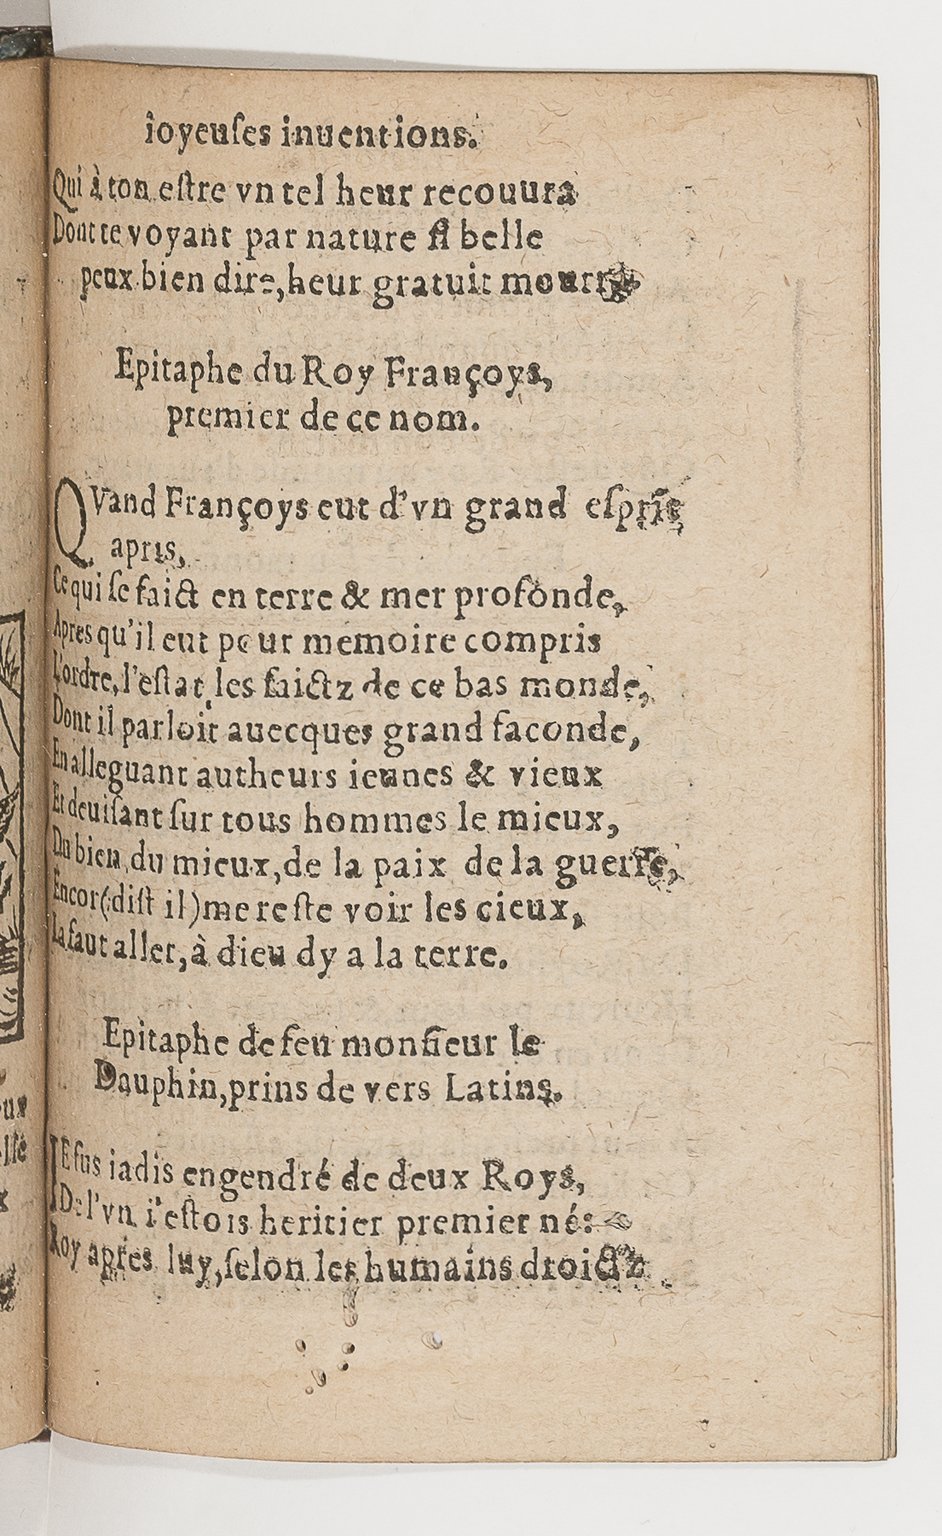 ioyeuſes inuentions.
Qui à ton eſtre vn tel heur recouura
Dont te voyant par nature ſi belle
peux bien dire, heur gratuit
Epitaphe du Roy Françoys,
premier de ce nom.
QVand Françoys eut d'vn grand eſprit
apris,
Ce qui ſe faict en terre & mer profonde,
Apres qu'il eut pour memoire compris
L'ordre, l'eſtat les faictz de ce bas monde,
Dont il parloit auecques grand faconde,
En alleguant autheurs ieunes & vieux
Et deuiſant ſur tous hommes le mieux,
Du bien, du mieux, de la paix de la guerre,
Encor (diſt il) me reſte voir les cieux,
La faut aller, à dieu dy a la terre.
Epitaphe de feu monſieur le
Dauphin, prins de vers Latins.
IE fus iadis engendré de deux Roys,
De l'vn i'eſtois heritier premier né:
Roy aprés luy, ſelon les humains droictz